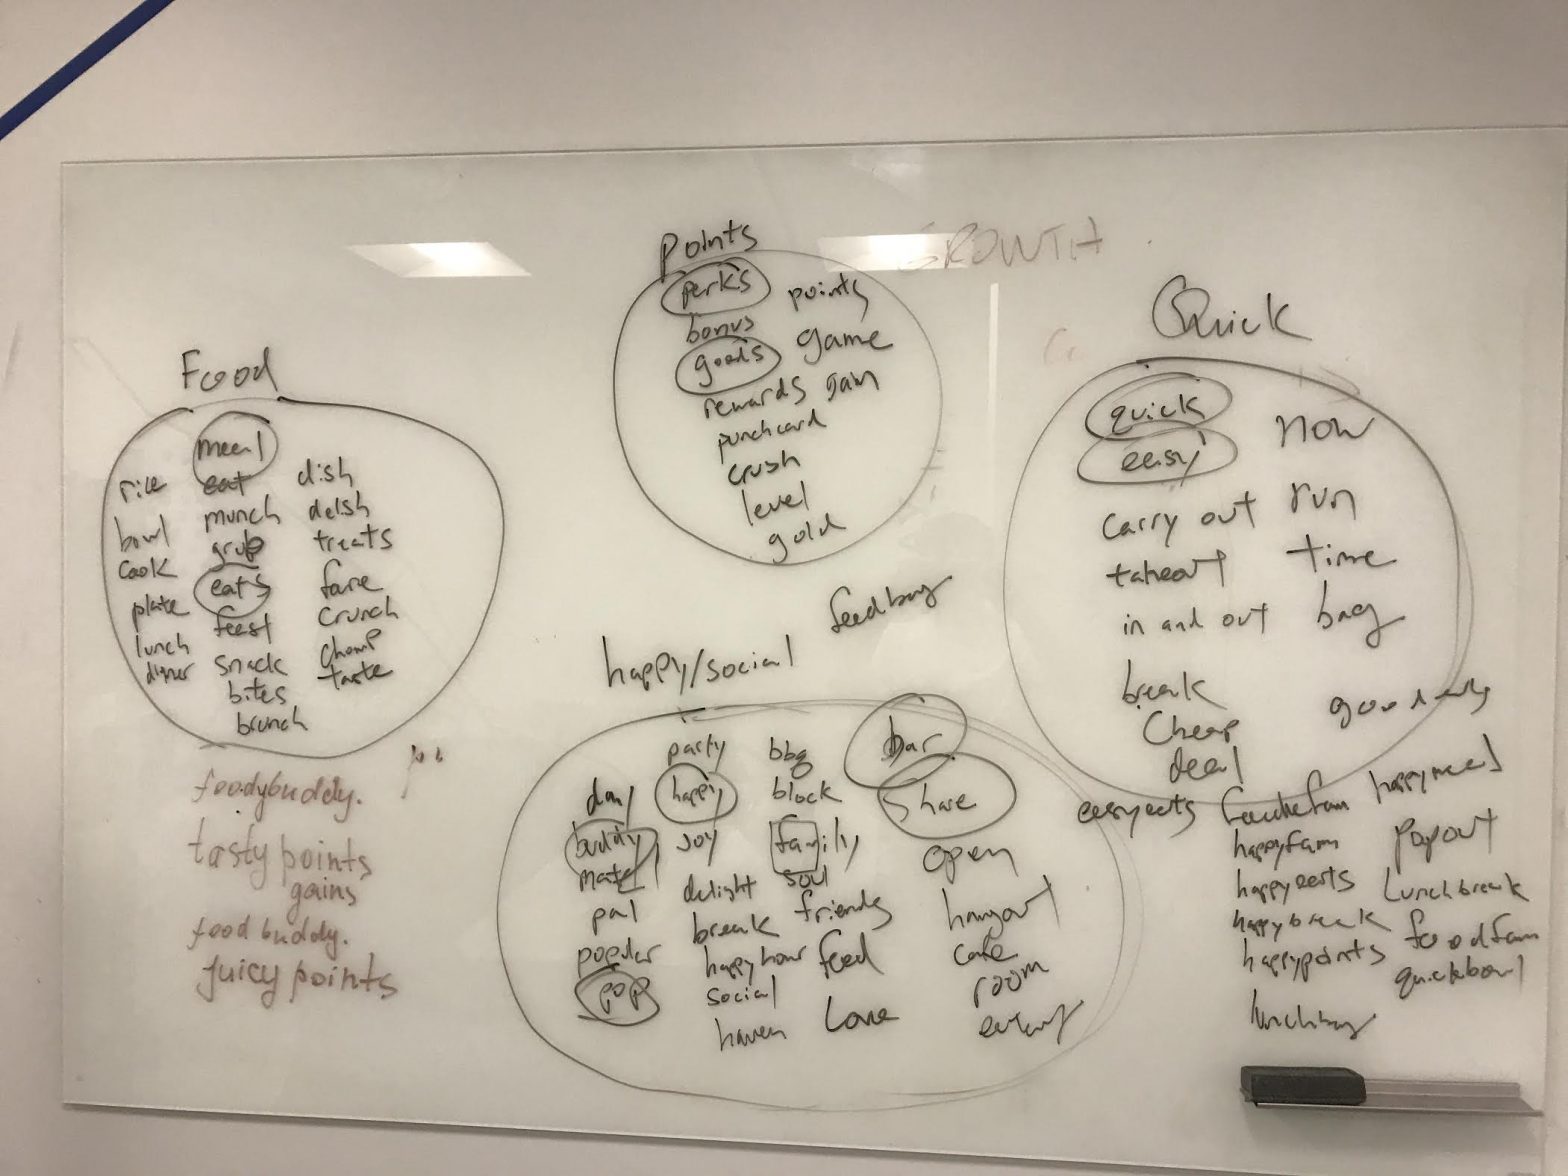 GROWTH
Points
perks points
bonus game
goods
rewards gain
punchcard
crush
level
gold
Food
meal
rice eat dish
bowl munch delish
cook grub treats
plate eats fare
lunch feast crunch
dinner snack chomp
bites taste
brunch
Quick
quick now
easy
carry out run
takeout time
in and out bag
break
cheap
deal
feedbag
happy/social
party bbq bar
day happy block share
buddy joy family open
mate delight soul
pal break friends hangout
popular happy hour feed cafe
pop social room
haven love
foodybuddy.
tasty points
gains
food buddy.
juicy points
easyeats happymeal
happyfam popout
happyeats lunchbreak
happybreak foodfam
happypoints quickbowl
lunchbag